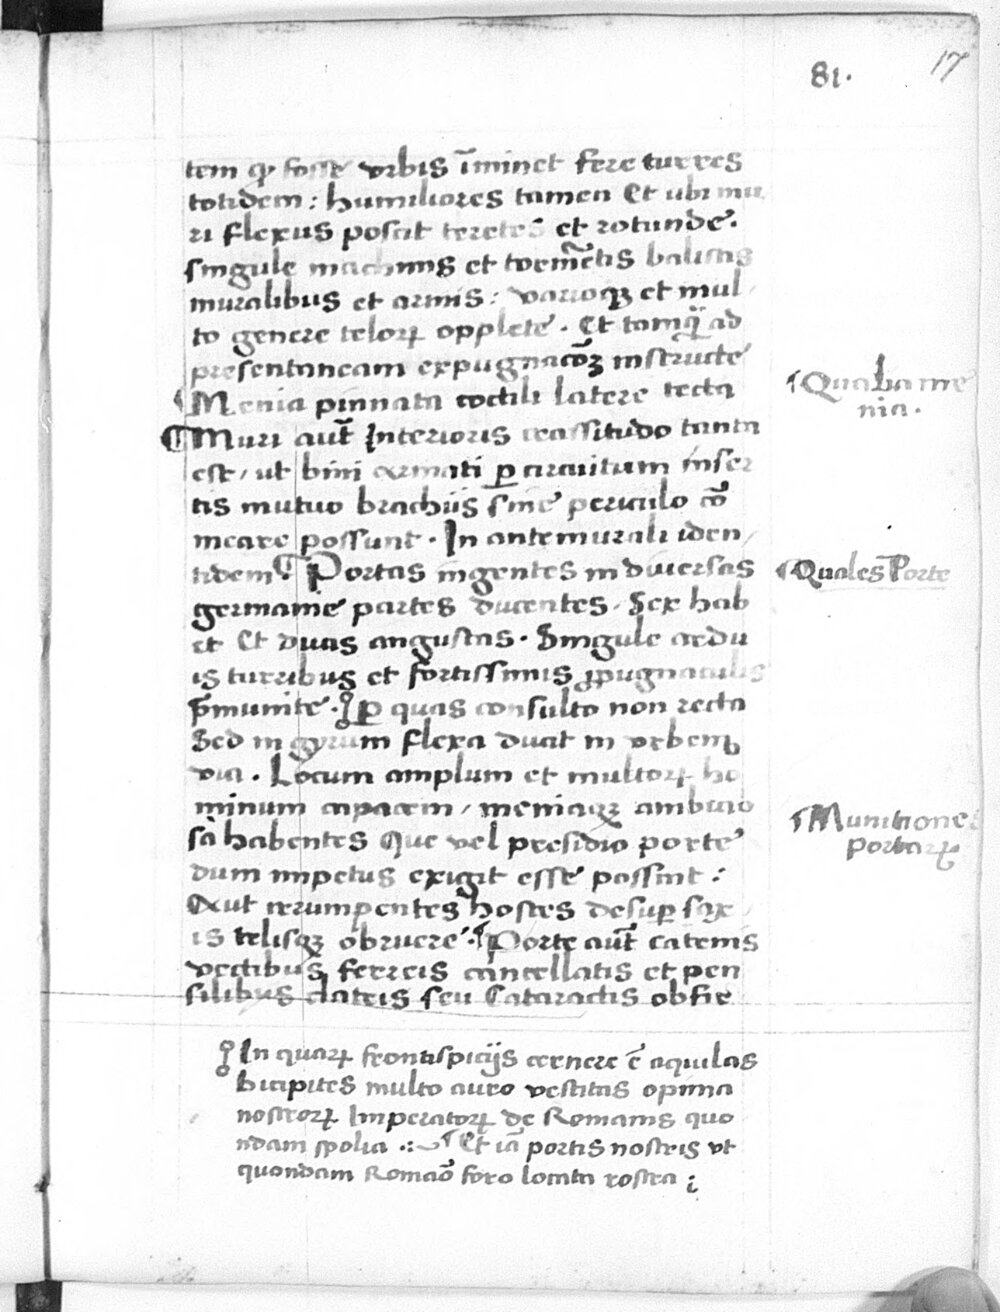 81.
17
tem qͥ fosse vrbis īminet fere turres
totidem : humiliores tamen Et ubi mu
ri flexus poscit teretes et rotunde.
singule machinis et tormētis balistis
muralibus et armis : varioqꝫ et mul
to genere teloꝝ opplete . Et tamqͣ ad
presentaneam expugnacōꝫ instructe
Menia pinnata coctili latere tecta
Qualia me
nia.
Muri aut̄ Interioris crassitudo tanta
est / ut bini armati ꝑ circuitum inser
tis mutuo brachijs sine periculo cō
meare possunt . In antemurali iden
tidem Portas ingentes in diuersas
Quales Porte
germanie partes ducentes . Sex hab
et Et duas angustas . Singule ardu
is turribus et fortissimis ꝓpugnaculis
p̄munite . ꝑ quas consulto non recta
Sed in gyrum flexa ducit in vrbem
via . Locum amplum et multoꝝ ho
minum capacem / meniaqꝫ ambicio
Munitiones
portaꝝ
sa habentes Que vel presidio porte
dum impetus exigit esse possint :
Aut irrumpentes hostes desuꝑ sax
is telisqꝫ obruere . Porte aut̄ catenis
vectibus ferreis cancellatis et pen
silibus clatris seu Cataractis obfir
In quaꝝ frontispicijs cernere ē aquilas
bicipites multo auro vestitas opima
nostroꝝ Imperatoꝝ de Romanis quo
ndam spolia .:~ Et iā portis nostris vt
quondam Romāo foro locata rostra ;